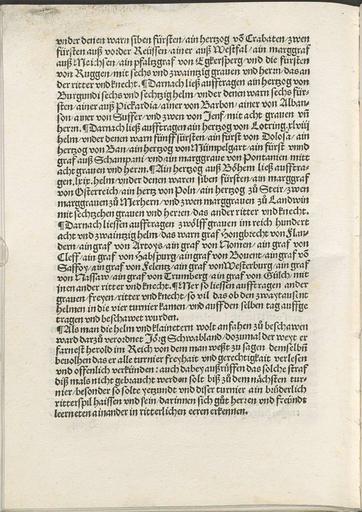 vnder denen warn siben fürsten/ein hertzog vō Crabaten/zwen
fürsten auß vorder Reüssen/ainer auß Westfal/ain marggraf
auß Meichsen/ain pfaltzgraf von Egkersperg/vnd die fürsten
von Ruggen/mit sechs vnd zwaintzig grauen vnd herrn/das an
der ritter vnd knecht. ¶Darnach ließ aufftragen ain hertzog von
Burgundi sechs vnd sechtzig helm/vnder denen warn sechs für
sten/ainer auß Pickardia/ainer von Barbon/ainer von Alban/
son/auer von Suffer/vnd zwen von Jenf/mit acht grauen vñ
herrn. ¶Darnach ließ aufftragen ain hertzog von Lotring.xlviij
helm/vnder denen warn fünff fürsten/ain fürst von Dolosa/ain
hertzog von Ban/ain hertzog von Mümpelgart/ain fürst vnnd
graf auß Schampani/vnd ain marggraue von Pontanien mitt
acht grauen vnd herrn. ¶Ain hertzog auß Böhem ließ aufftra-
gen.lxix.helm/vnder denen waren siben fürsten/ain marggraf
von Osterreich/ain hertz von Poln/ain hertzog zů Steir/zwen
marggrauen zů Merhern/vnd zwen marggrauen zů Landwin
mit sechtzehen grauen vnd herren/das ander ritter vnd knecht.
¶Darnach liessen aufftragen zwölff grauen im reich hundert
acht vnd zwaintzig helm/das warn graf Hongbrecht von Flan/
dern/ain graf von Artoys/ain graf von Nomen/ain graf von
Cleff/ain graf von Habspurg/ain graf von Bouent/ain graf vō
Saffoy/ain graf von Felentz/ain graf von Westerburg/ain graf
von Nassaw/ain graf von Trumberg/ain graf von Gülch/mit
jnen ander ritter vnd knecht. ¶Mer so liessen aufftragen ander
grauen/freyen/ritter vnd knecht/so vil das ob den zwaytausint
helmen in die vier turnier kamen/vnd auff den selben tag auffge
tragen vnd beschawet wurden.
¶Als man die helm vnd klainetern wolt anfahen zů beschawen
ward darzů verordnet Jörg Schwabland/dozumal der weyt er
farnest herold im Reich von dem man weßt zů sagen/demselbñ
beuolhen das er alle turnier freyhait vnd gerechtigkait verlesen
vnd offenlich verkünden: auch dabey außrüffen das solche straf
diß mals nicht gebraucht werden solt/biß zů dem nächsten tur-
nier/besonder so solte yetzundt vnd diser turnier ain brüderlich
ritterspil haissen vnd sein/darinnen sich gůt hertzen vnd freündt
leerneten ainander in ritterlichen eeren erkennen.